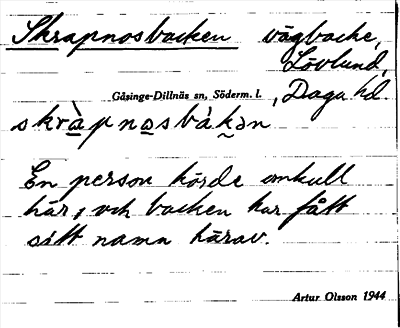 Skrapnosbacken vägbacke,
Lövlund,
Gåsinge-Dillnäs sn, Söderm. l. , Daga hd.
skràpnasbàkən
En person körde omkull
här, och backen har fått
sitt namn härav.
Artur Olsson 1944